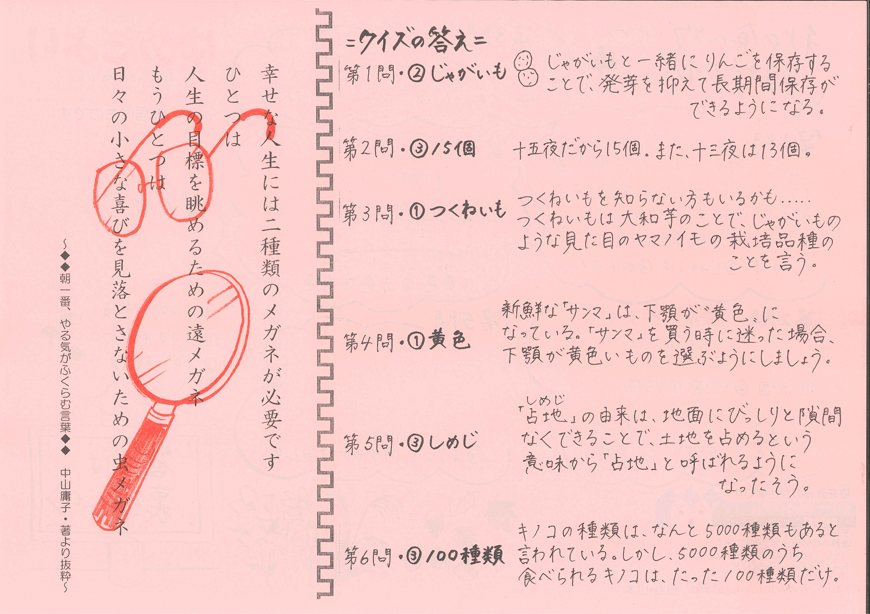 幸せな人生には二種類のメガネが必要です
ひとつは
人生の目標を眺めるための遠メガネ
もうひとつは
日々の小さな喜びを見落とさないための虫メガネ
～◆◆朝一番、やる気がふくらむ言葉◆◆　中山庸子・著より抜粋～
=クイズの答え=
第1問・②じゃがいも
じゃがいもと一緒にりんごを保存する
ことで、発芽を抑えて長期間保存が
できるようになる。
第2問・③15個
十五夜だから15個。また、十三夜は13個。
第3問・①つくねいも
つくねいもを知らない方もいるかも.....
つくねいもは大和芋のことで、じゃがいもの
ような見た目のヤマノイモの栽培品種の
ことを言う。
第4問・①黄色
新鮮な「サンマ」は、下顎が“黄色”に
なっている。「サンマ」を買う時に迷った場合、
下顎が黄色いものを選ぶようにしましょう。
第5問・③しめじ
しめじ
「占地」の由来は、地面にびっしりと隙間
なくできることで、土地を占めるという
意味から「占地」と呼ばれるように
なったそう。
第6問・③100種類
キノコの種類は、なんと5000種類もあると
言われている。しかし、5000種類のうち
食べられるキノコは、たった100種類だけ。